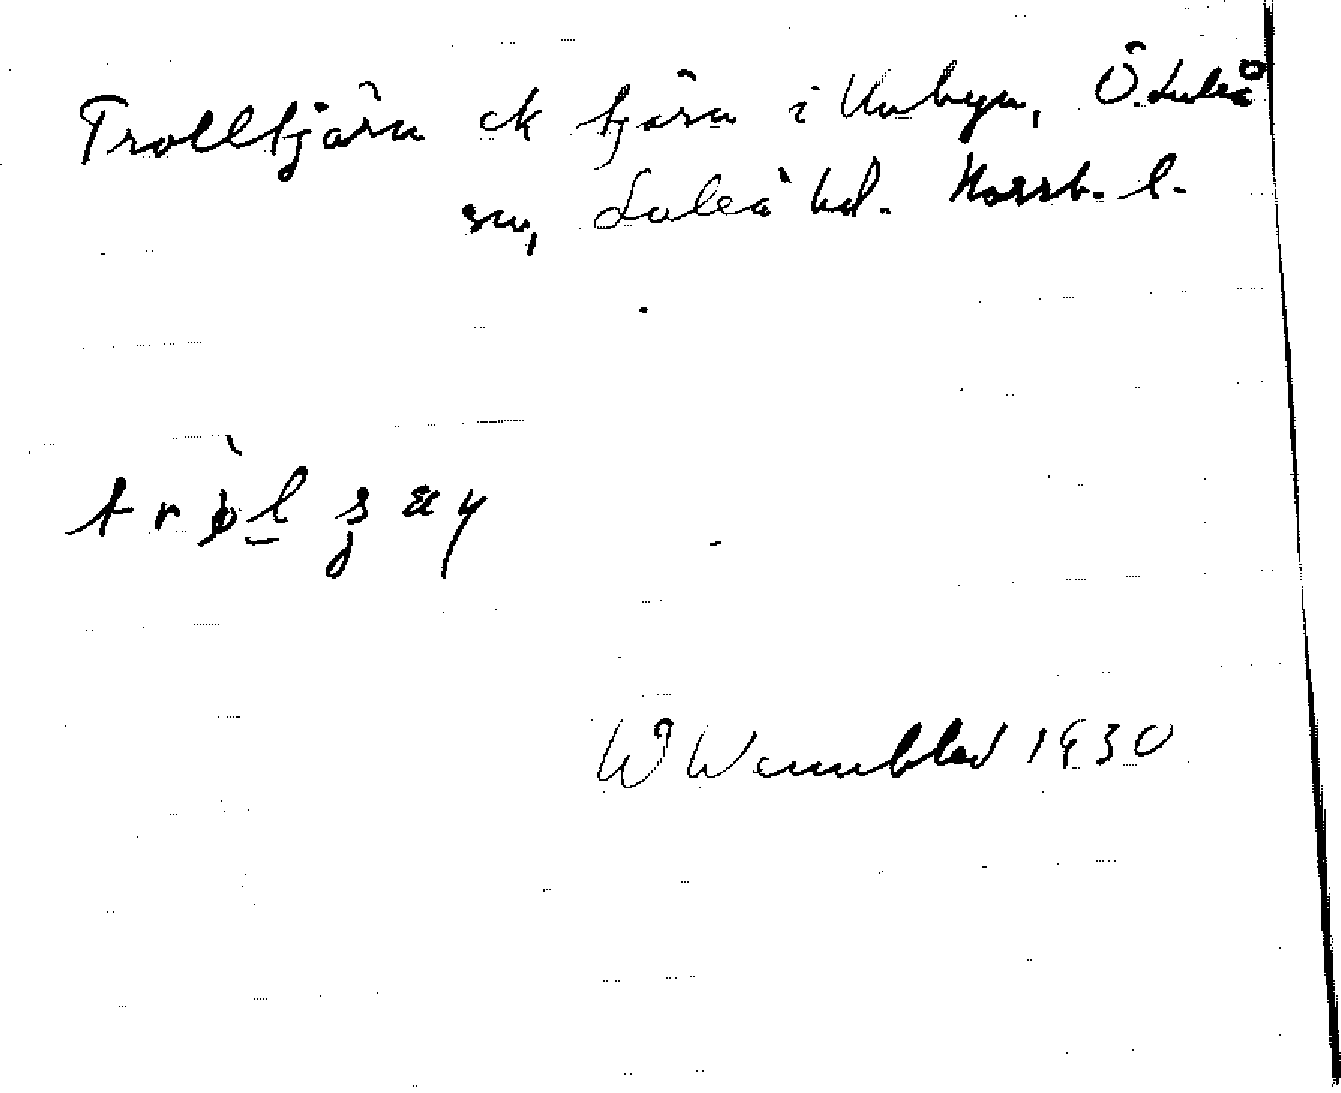 Trolltjärn ck tjärn i Unbyn, Ö. Luleå
sn, Luleå hd. Norrb. l.
W Wennblad 1930